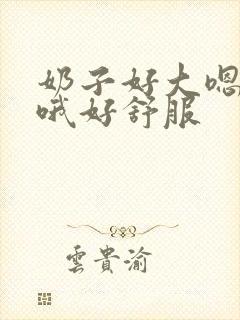 奶子好大嗯
哦好舒服
雲貴渝